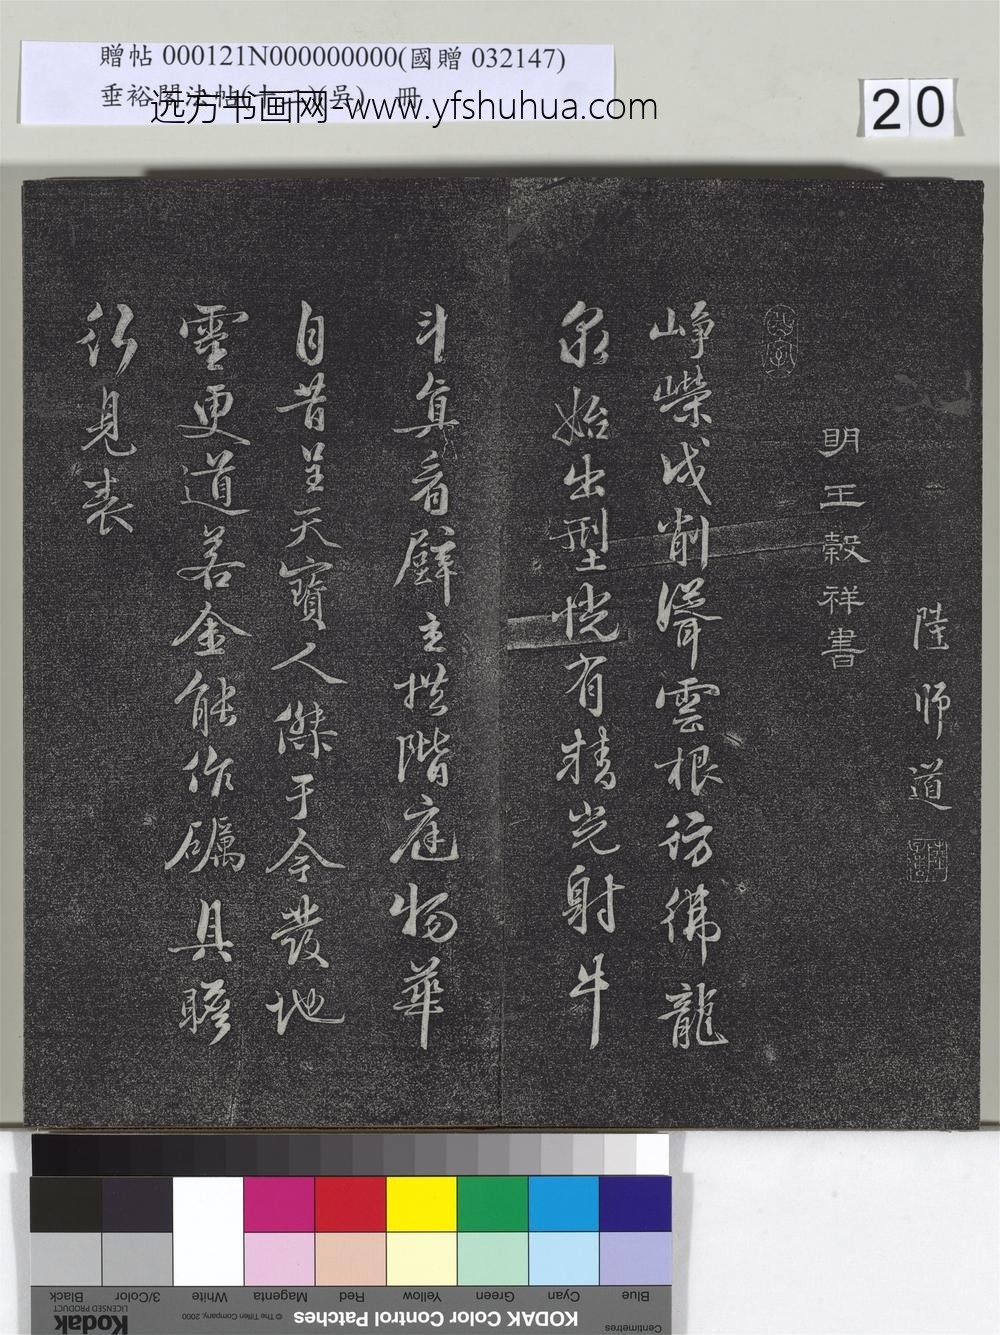 贈帖 000121N000000000(國贈 032147)
垂裕閣法帖(十一)(吳) 冊
远方书画网-www.yfshuhua.com
20
陸師道
明王穀祥書
崢嶸戌削聳雲根彷彿龍
泉始出型恍有精光射牛
斗真看璧立拱階庭物華
自昔呈天寶人傑于今發地
靈更道若金能作礪具瞻
行見表
Black
3/Color
White
Magenta
Red
Yellow
Green
Cyan
Blue
Kodak
LICENSED PRODUCT
© The Tiffen Company, 2000
KODAK Color Control Patches
Centimetres